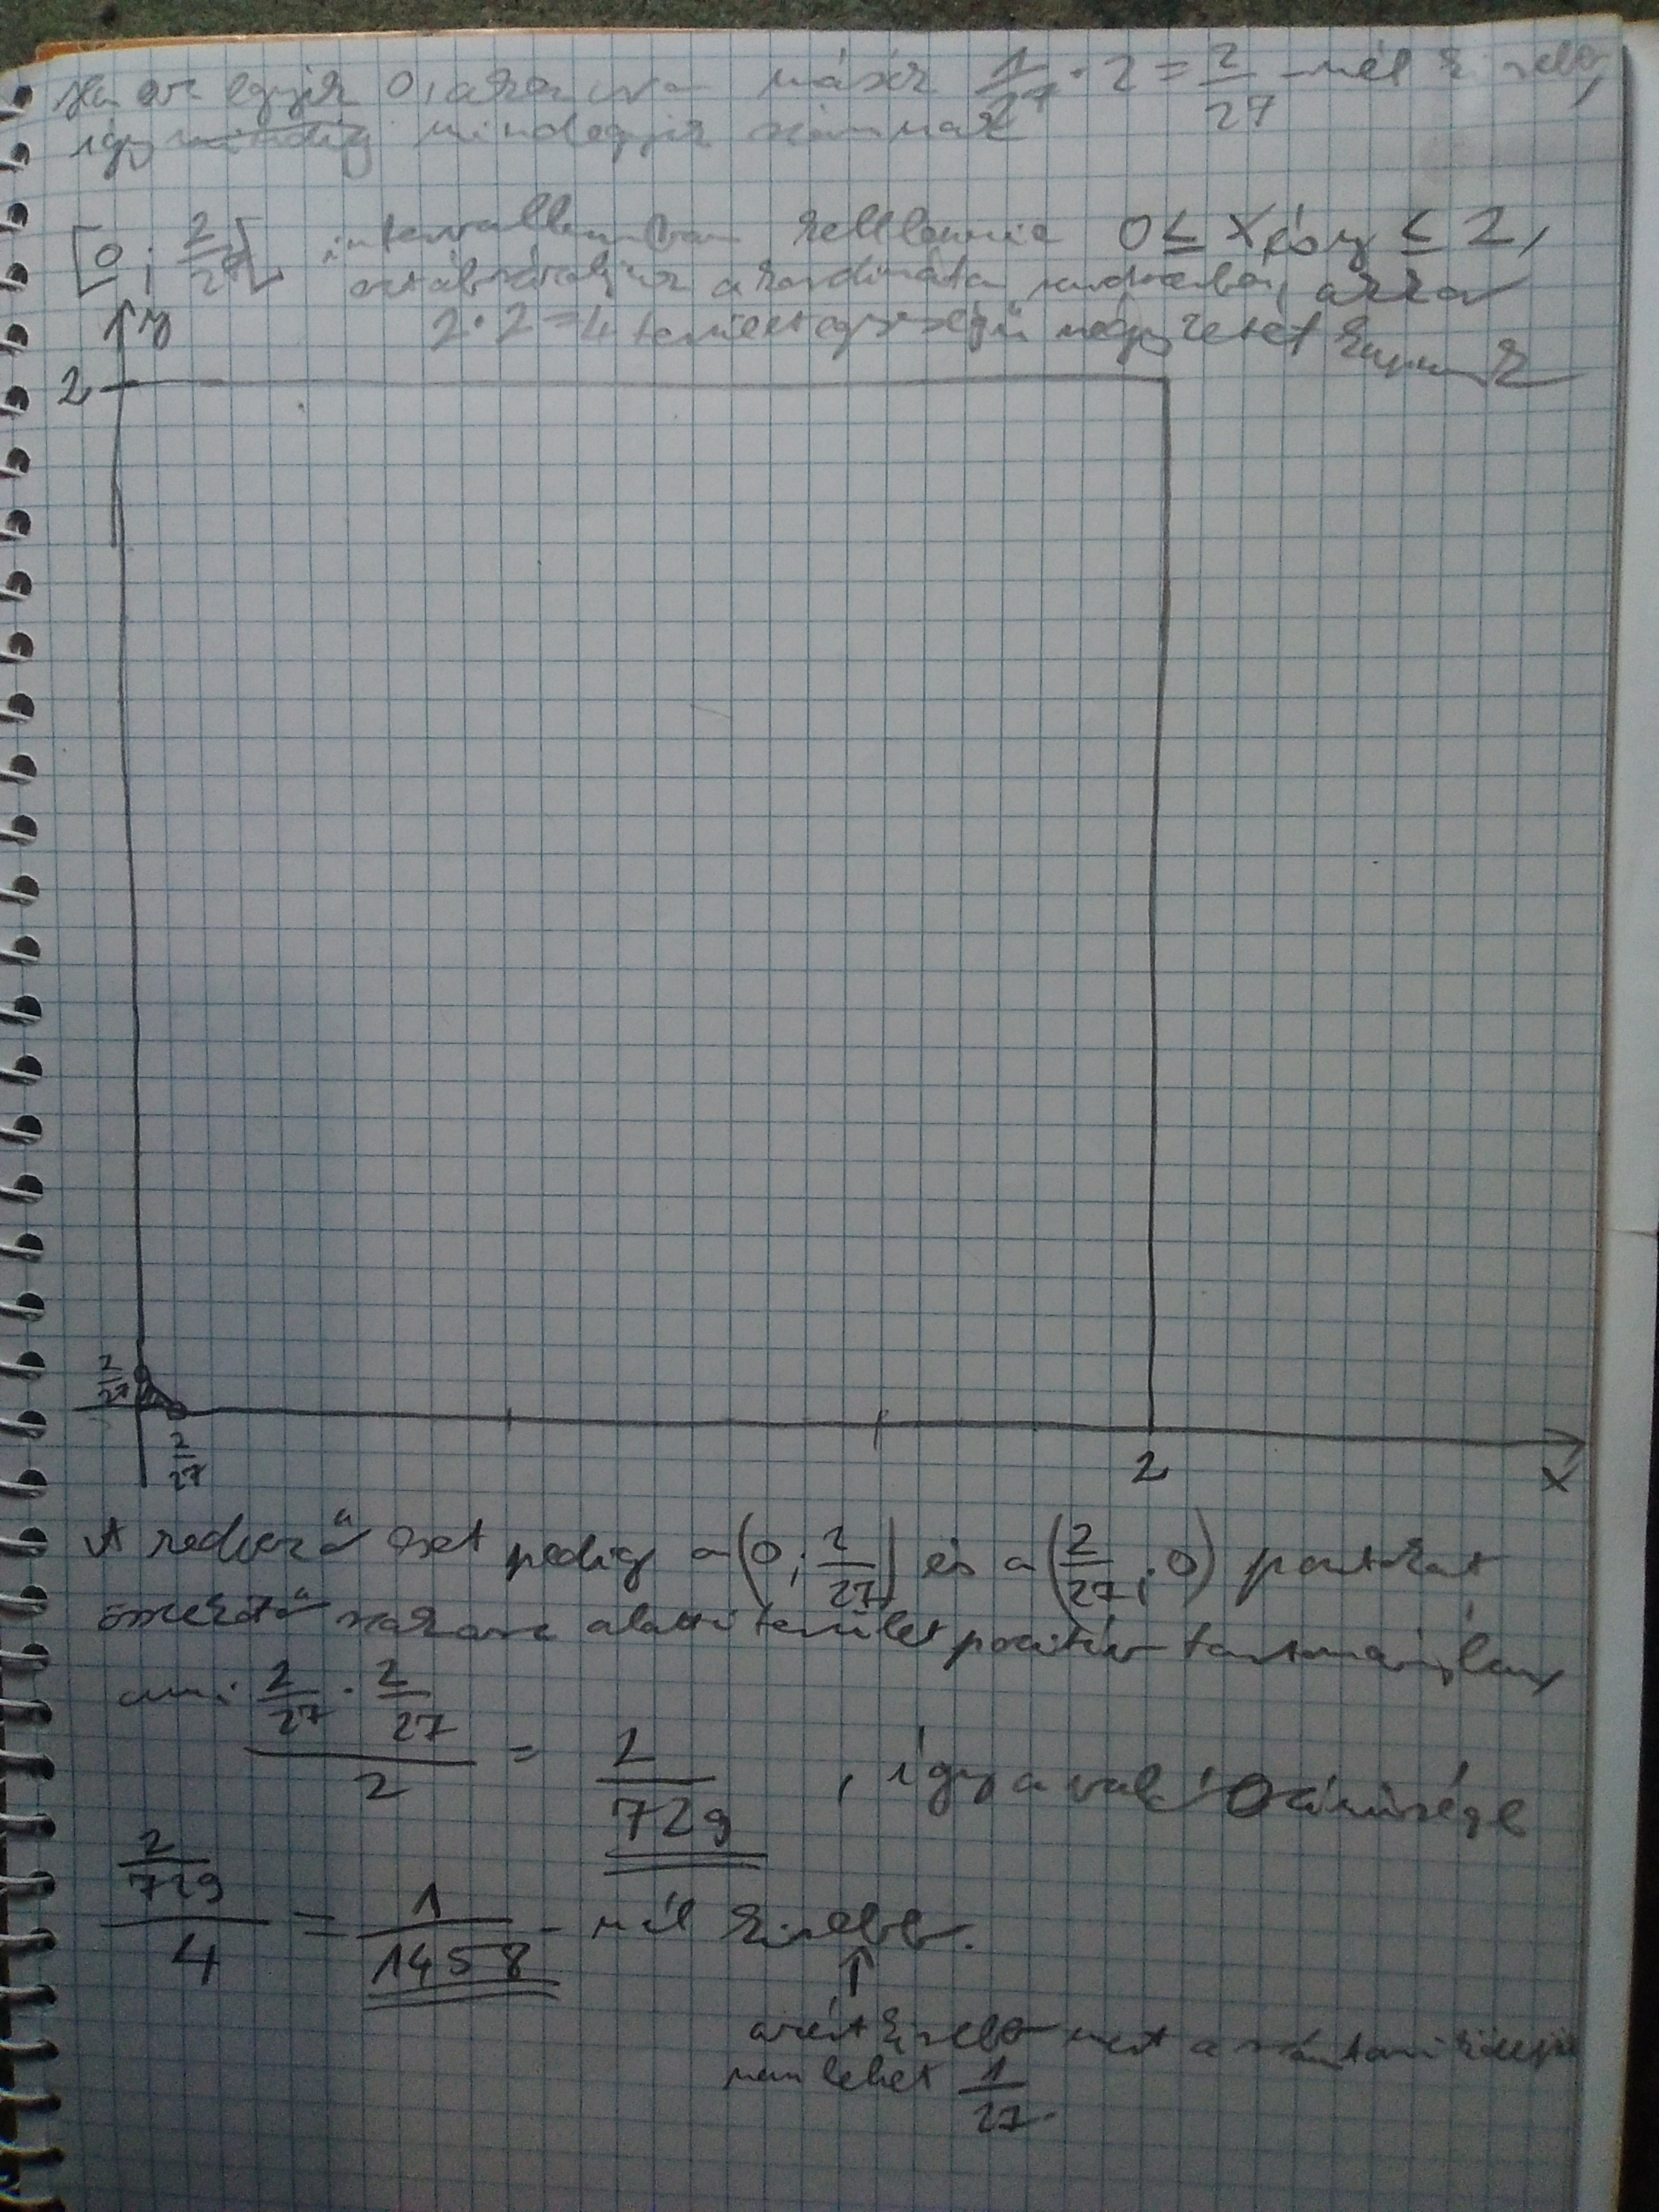 Ha az egyik 0, akkor a másik 1/27 · 2 = 2/27 -nél kisebb,
így mindig mindegyik számnak
[0; 2/27[ intervallumban kell lennie 0 ≤ x és y ≤ 2,
ezt ábrázoljuk a koordináta rendszerben, akkor
2·2=4 területegységű négyzetet kapunk
y
2
2/27
2/27
2
x
A kedvező eset pedig a (0; 2/27) és a (2/27; 0) pontokat
összekötő szakasz alatti terület pozitív tartományban,
ami (2/27 · 2/27)/2 = 2/729, így a valószínűsége
(2/729)/4 = 1/1458 -nál kisebb.
↑
azért kisebb mert a számtani közepe
nem lehet 1/27.